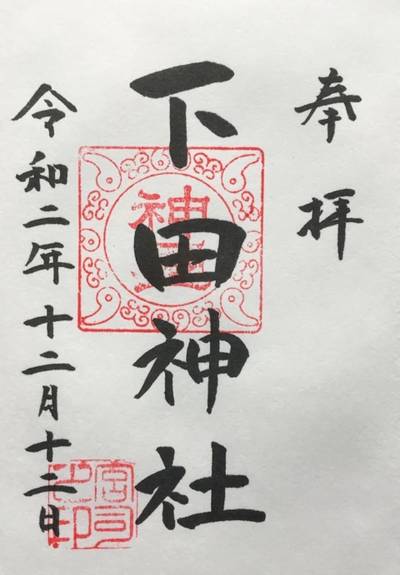 奉拝
下田神社
令和二年十二月十二日
宮司之印